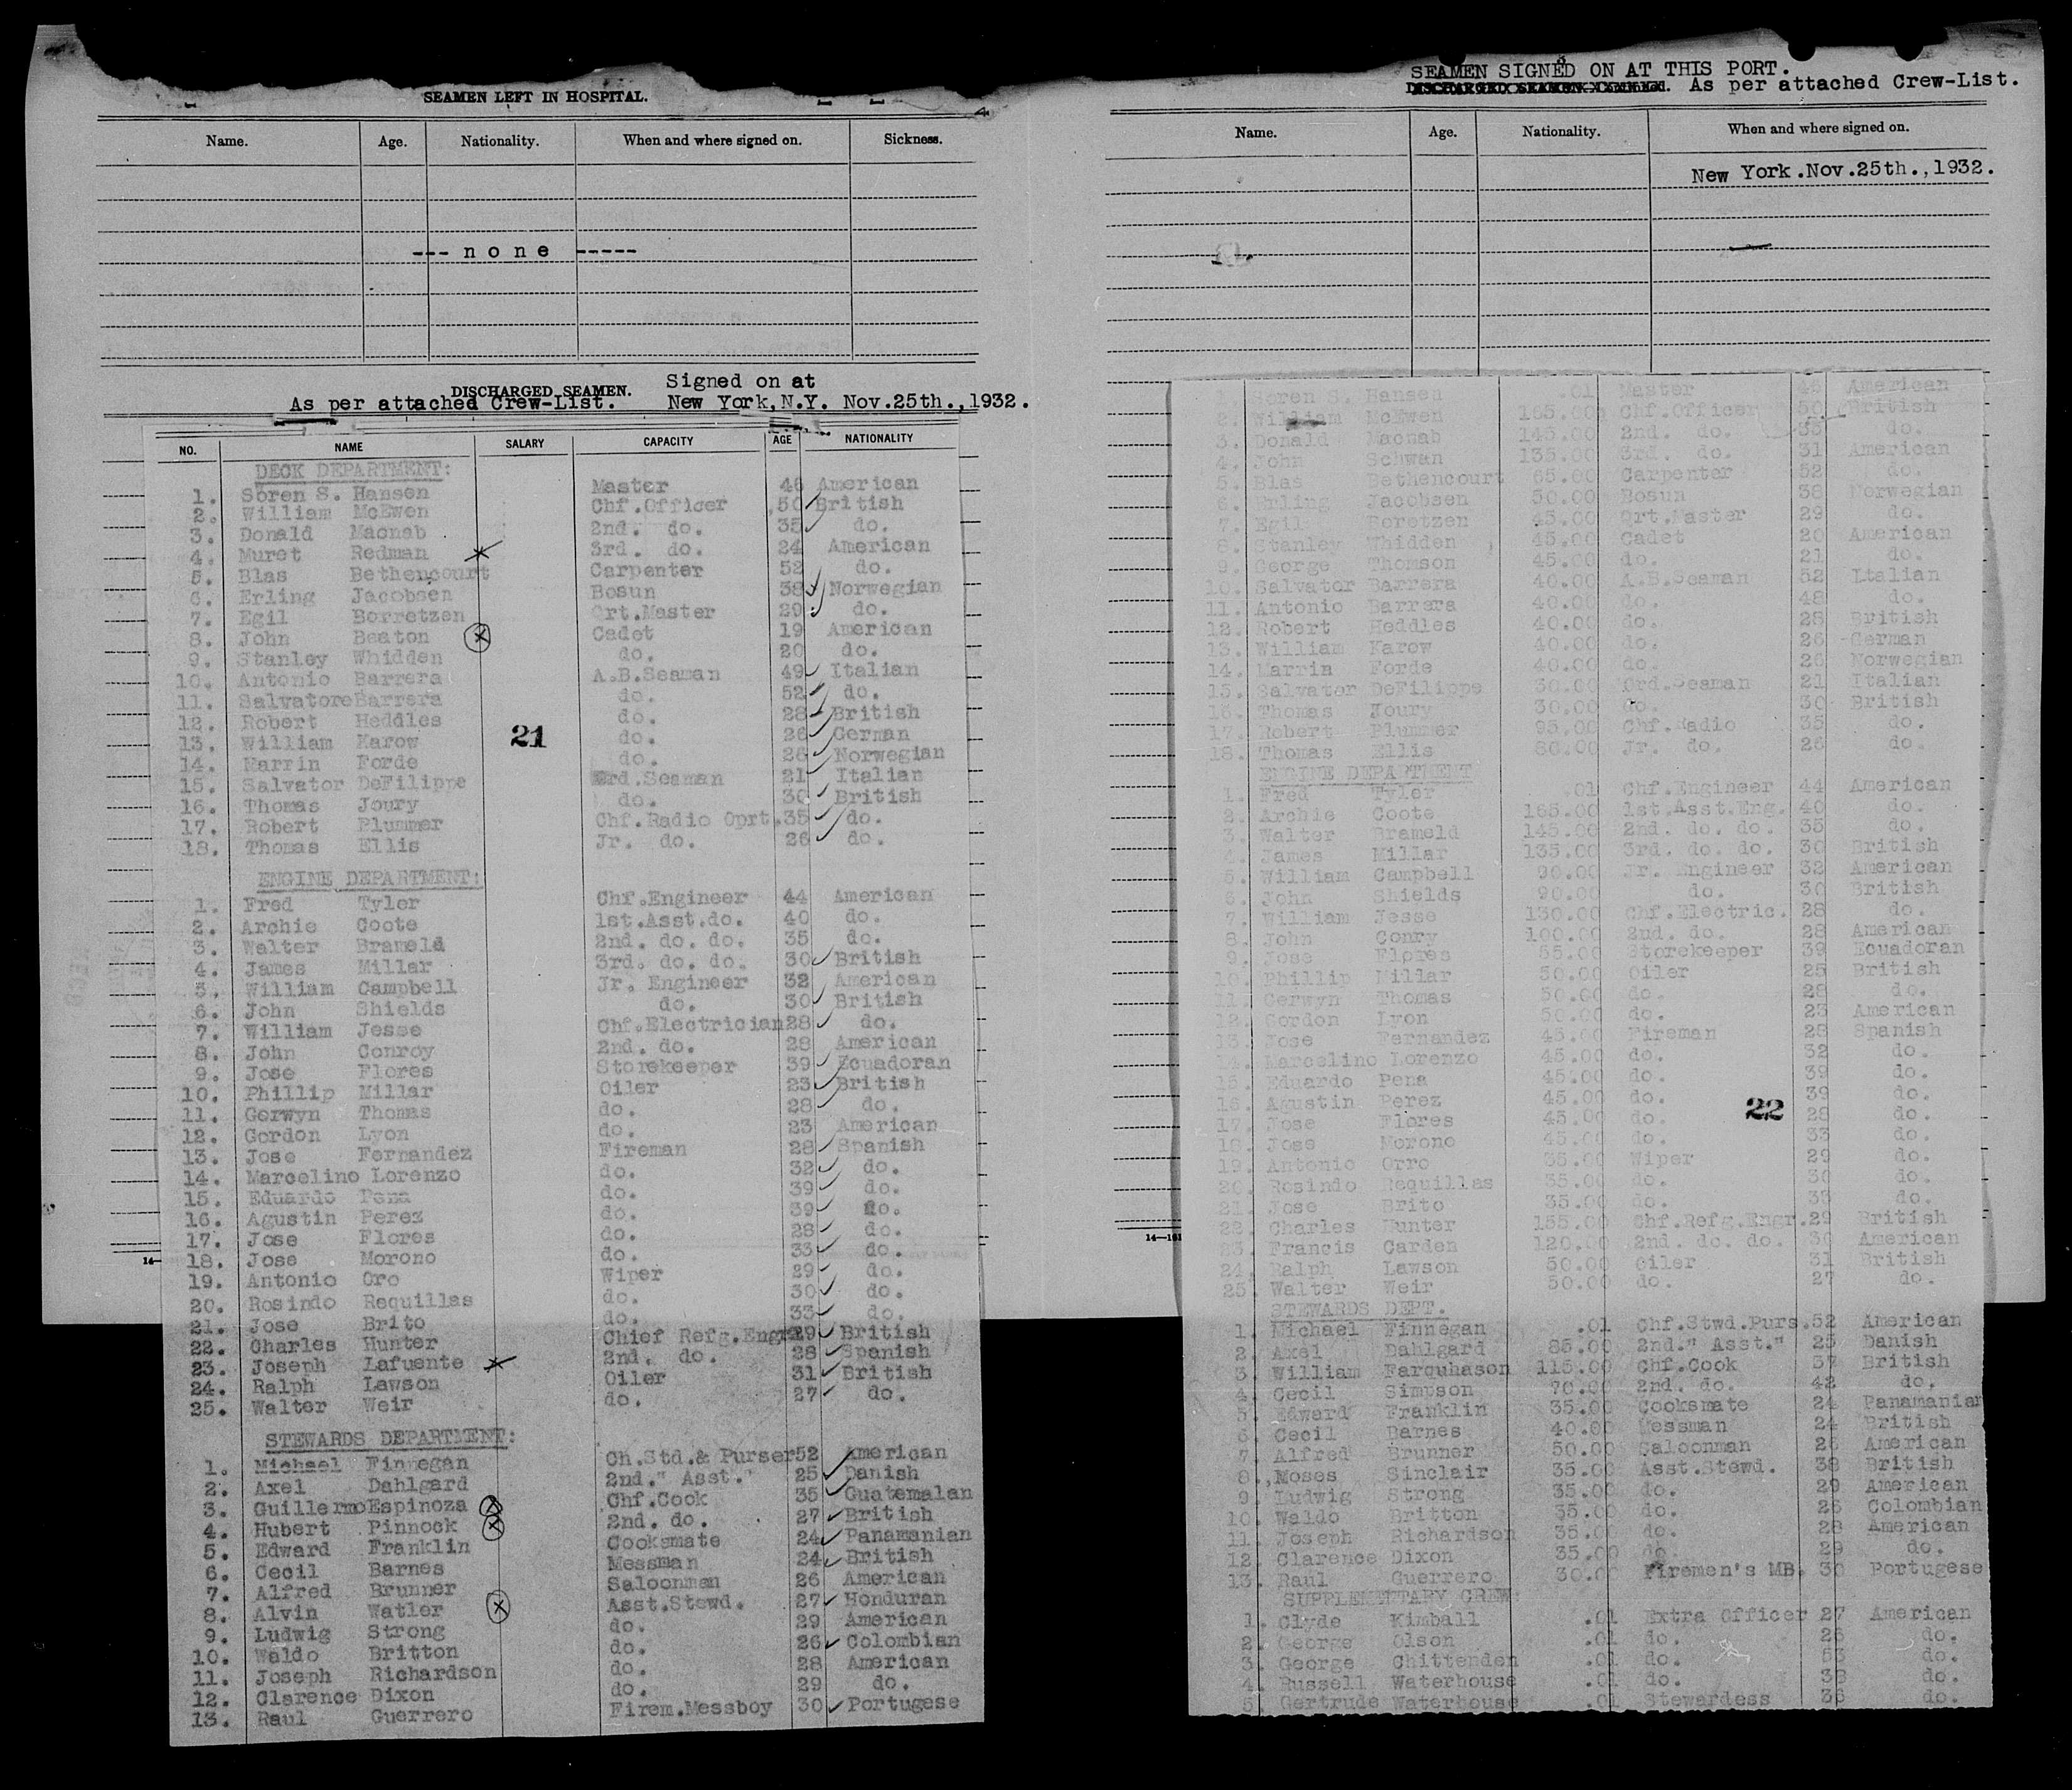 SEAMEN LEFT IN HOSPITAL.
Name. Age. Nationality. When and where signed on. Sickness.
--- n o n e -----
DISCHARGED SEAMEN. Signed on at
As per attached Crew-List. New York, N.Y. Nov.25th.,1932.
NO. NAME SALARY CAPACITY AGE NATIONALITY
DECK DEPARTMENT:
1. Soren S. Hansen Master 46 American
2. William McEwen Chf.Officer 50 British
3. Donald Macnab 2nd. do. 35 do.
4. Muret Redman 3rd. do. 24 American
5. Blas Bethencourt Carpenter 52 do.
6. Erling Jacobsen Bosun 38 Norwegian
7. Egil Borretzen Qrt.Master 29 do.
8. John Beaton Cadet 19 American
9. Stanley Whidden do. 20 do.
10. Antonio Barrera A.B.Seaman 49 Italian
11. Salvatore Barrera do. 52 do.
12. Robert Heddles do. 28 British
13. William Karow do. 26 German
14. Marrin Forde do. 26 Norwegian
15. Salvator DeFilippe Ord.Seaman 21 Italian
16. Thomas Joury do. 30 British
17. Robert Plummer Chf.Radio Oprt. 35 do.
18. Thomas Ellis Jr. do. 26 do.
21
ENGINE DEPARTMENT:
1. Fred Tyler Chf.Engineer 44 American
2. Archie Coote 1st.Asst.do. 40 do.
3. Walter Brameld 2nd. do. do. 35 do.
4. James Millar 3rd. do. do. 30 British
5. William Campbell Jr. Engineer 32 American
6. John Shields do. 30 British
7. William Jesse Chf.Electrician 28 do.
8. John Conroy 2nd. do. 28 American
9. Jose Flores Storekeeper 39 Ecuadoran
10. Phillip Millar Oiler 23 British
11. Gerwyn Thomas do. 28 do.
12. Gordon Lyon do. 23 American
13. Jose Fernandez Fireman 28 Spanish
14. Marcelino Lorenzo do. 32 do.
15. Eduardo Pena do. 39 do.
16. Agustin Perez do. 39 do.
17. Jose Flores do. 28 do.
18. Jose Morono do. 33 do.
19. Antonio Oro Wiper 29 do.
20. Rosindo Requillas do. 30 do.
21. Jose Brito do. 33 do.
22. Charles Hunter Chief Refg.Engr. 29 British
23. Joseph Lafuente 2nd. do. 28 Spanish
24. Ralph Lawson Oiler 31 British
25. Walter Weir do. 27 do.
14—
STEWARDS DEPARTMENT:
1. Michael Finnegan Ch.Std.& Purser 52 American
2. Axel Dahlgard 2nd." Asst." 25 Danish
3. Guillermo Espinoza Chf.Cook 35 Guatemalan
4. Hubert Pinnock 2nd. do. 27 British
5. Edward Franklin Cooksmate 24 Panamanian
6. Cecil Barnes Messman 24 British
7. Alfred Brunner Saloonman 26 American
8. Alvin Watler Asst.Stewd. 27 Honduran
9. Ludwig Strong do. 29 American
10. Waldo Britton do. 26 Colombian
11. Joseph Richardson do. 28 American
12. Clarence Dixon do. 29 do.
13. Raul Guerrero Firem.Messboy 30 Portugese
SEAMEN SIGNED ON AT THIS PORT.
As per attached Crew-List.
Name. Age. Nationality. When and where signed on.
New York.Nov.25th.,1932.
Soren S. Hansen .01 Master 46 American
2. William McEwen 165.00 Chf.Officer 50 British
3. Donald Macnab 145.00 2nd. do. 35 do.
4. John Schwan 135.00 3rd. do. 31 American
5. Blas Bethencourt 65.00 Carpenter 52 do.
6. Erling Jacobsen 50.00 Bosun 38 Norwegian
7. Egil Boretzen 45.00 Qrt.Master 29 do.
8. Stanley Whidden 45.00 Cadet 20 American
9. George Thomson 45.00 do. 21 do.
10. Salvator Barrera 40.00 A.B.Seaman 52 Italian
11. Antonio Barrera 40.00 do. 48 do.
12. Robert Heddles 40.00 do. 28 British
13. William Karow 40.00 do. 26 German
14. Marrin Forde 40.00 do. 26 Norwegian
15. Salvator DeFilippe 30.00 Ord.Seaman 21 Italian
16. Thomas Joury 30.00 do. 30 British
17. Robert Plummer 95.00 Chf.Radio 35 do.
18. Thomas Ellis 80.00 Jr. do. 26 do.
ENGINE DEPARTMENT
1. Fred Tyler .01 Chf.Engineer 44 American
2. Archie Coote 165.00 1st.Asst.Eng. 40 do.
3. Walter Brameld 145.00 2nd. do. do. 35 do.
4. James Millar 135.00 3rd. do. do. 30 British
5. William Campbell 90.00 Jr. Engineer 32 American
6. John Shields 90.00 do. 30 British
7. William Jesse 130.00 Chf.Electric. 28 do.
8. John Conry 100.00 2nd. do. 28 American
9. Jose Flores 55.00 Storekeeper 39 Ecuadoran
10. Phillip Millar 50.00 Oiler 25 British
11. Gerwyn Thomas 50.00 do. 28 do.
12. Gordon Lyon 50.00 do. 23 American
13. Jose Fernandez 45.00 Fireman 28 Spanish
14. Marcelino Lorenzo 45.00 do. 32 do.
15. Eduardo Pena 45.00 do. 39 do.
16. Agustin Perez 45.00 do. 39 do.
17. Jose Flores 45.00 do. 28 do.
18. Jose Morono 45.00 do. 33 do.
19. Antonio Orro 35.00 Wiper 29 do.
20. Rosindo Requillas 35.00 do. 30 do.
21. Jose Brito 35.00 do. 33 do.
22. Charles Hunter 155.00 Chf.Refg.Engr. 29 British
23. Francis Carden 120.00 2nd. do. do. 30 American
24. Ralph Lawson 50.00 Oiler 31 British
25. Walter Weir 50.00 do. 27 do.
22
14—161
STEWARDS DEPT.
1. Michael Finnegan .01 Chf.Stwd.Purs. 52 American
2. Axel Dahlgard 85.00 2nd." Asst." 25 Danish
3. William Farquhason 115.00 Chf.Cook 37 British
4. Cecil Simpson 70.00 2nd. do. 42 do.
5. Edward Franklin 35.00 Cooksmate 24 Panamanian
6. Cecil Barnes 40.00 Messman 24 British
7. Alfred Brunner 50.00 Saloonman 26 American
8. Moses Sinclair 35.00 Asst.Stewd. 38 British
9. Ludwig Strong 35.00 do. 29 American
10. Waldo Britton 35.00 do. 26 Colombian
11. Joseph Richardson 35.00 do. 28 American
12. Clarence Dixon 35.00 do. 29 do.
13. Raul Guerrero 30.00 Firemen's MB. 30 Portugese
SUPPLEMENTARY CREW:
1. Clyde Kimball .01 Extra Officer 27 American
2. George Olson .01 do. 26 do.
3. George Chittenden .01 do. 53 do.
4. Russell Waterhouse .01 do. 38 do.
5. Gertrude Waterhouse .01 Stewardess 36 do.